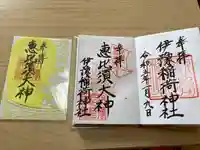 奉拝
伊豫稲荷神社
令和五年一月九日
奉拝
恵比須大神
伊豫稲荷神社
奉拝
恵比須大神